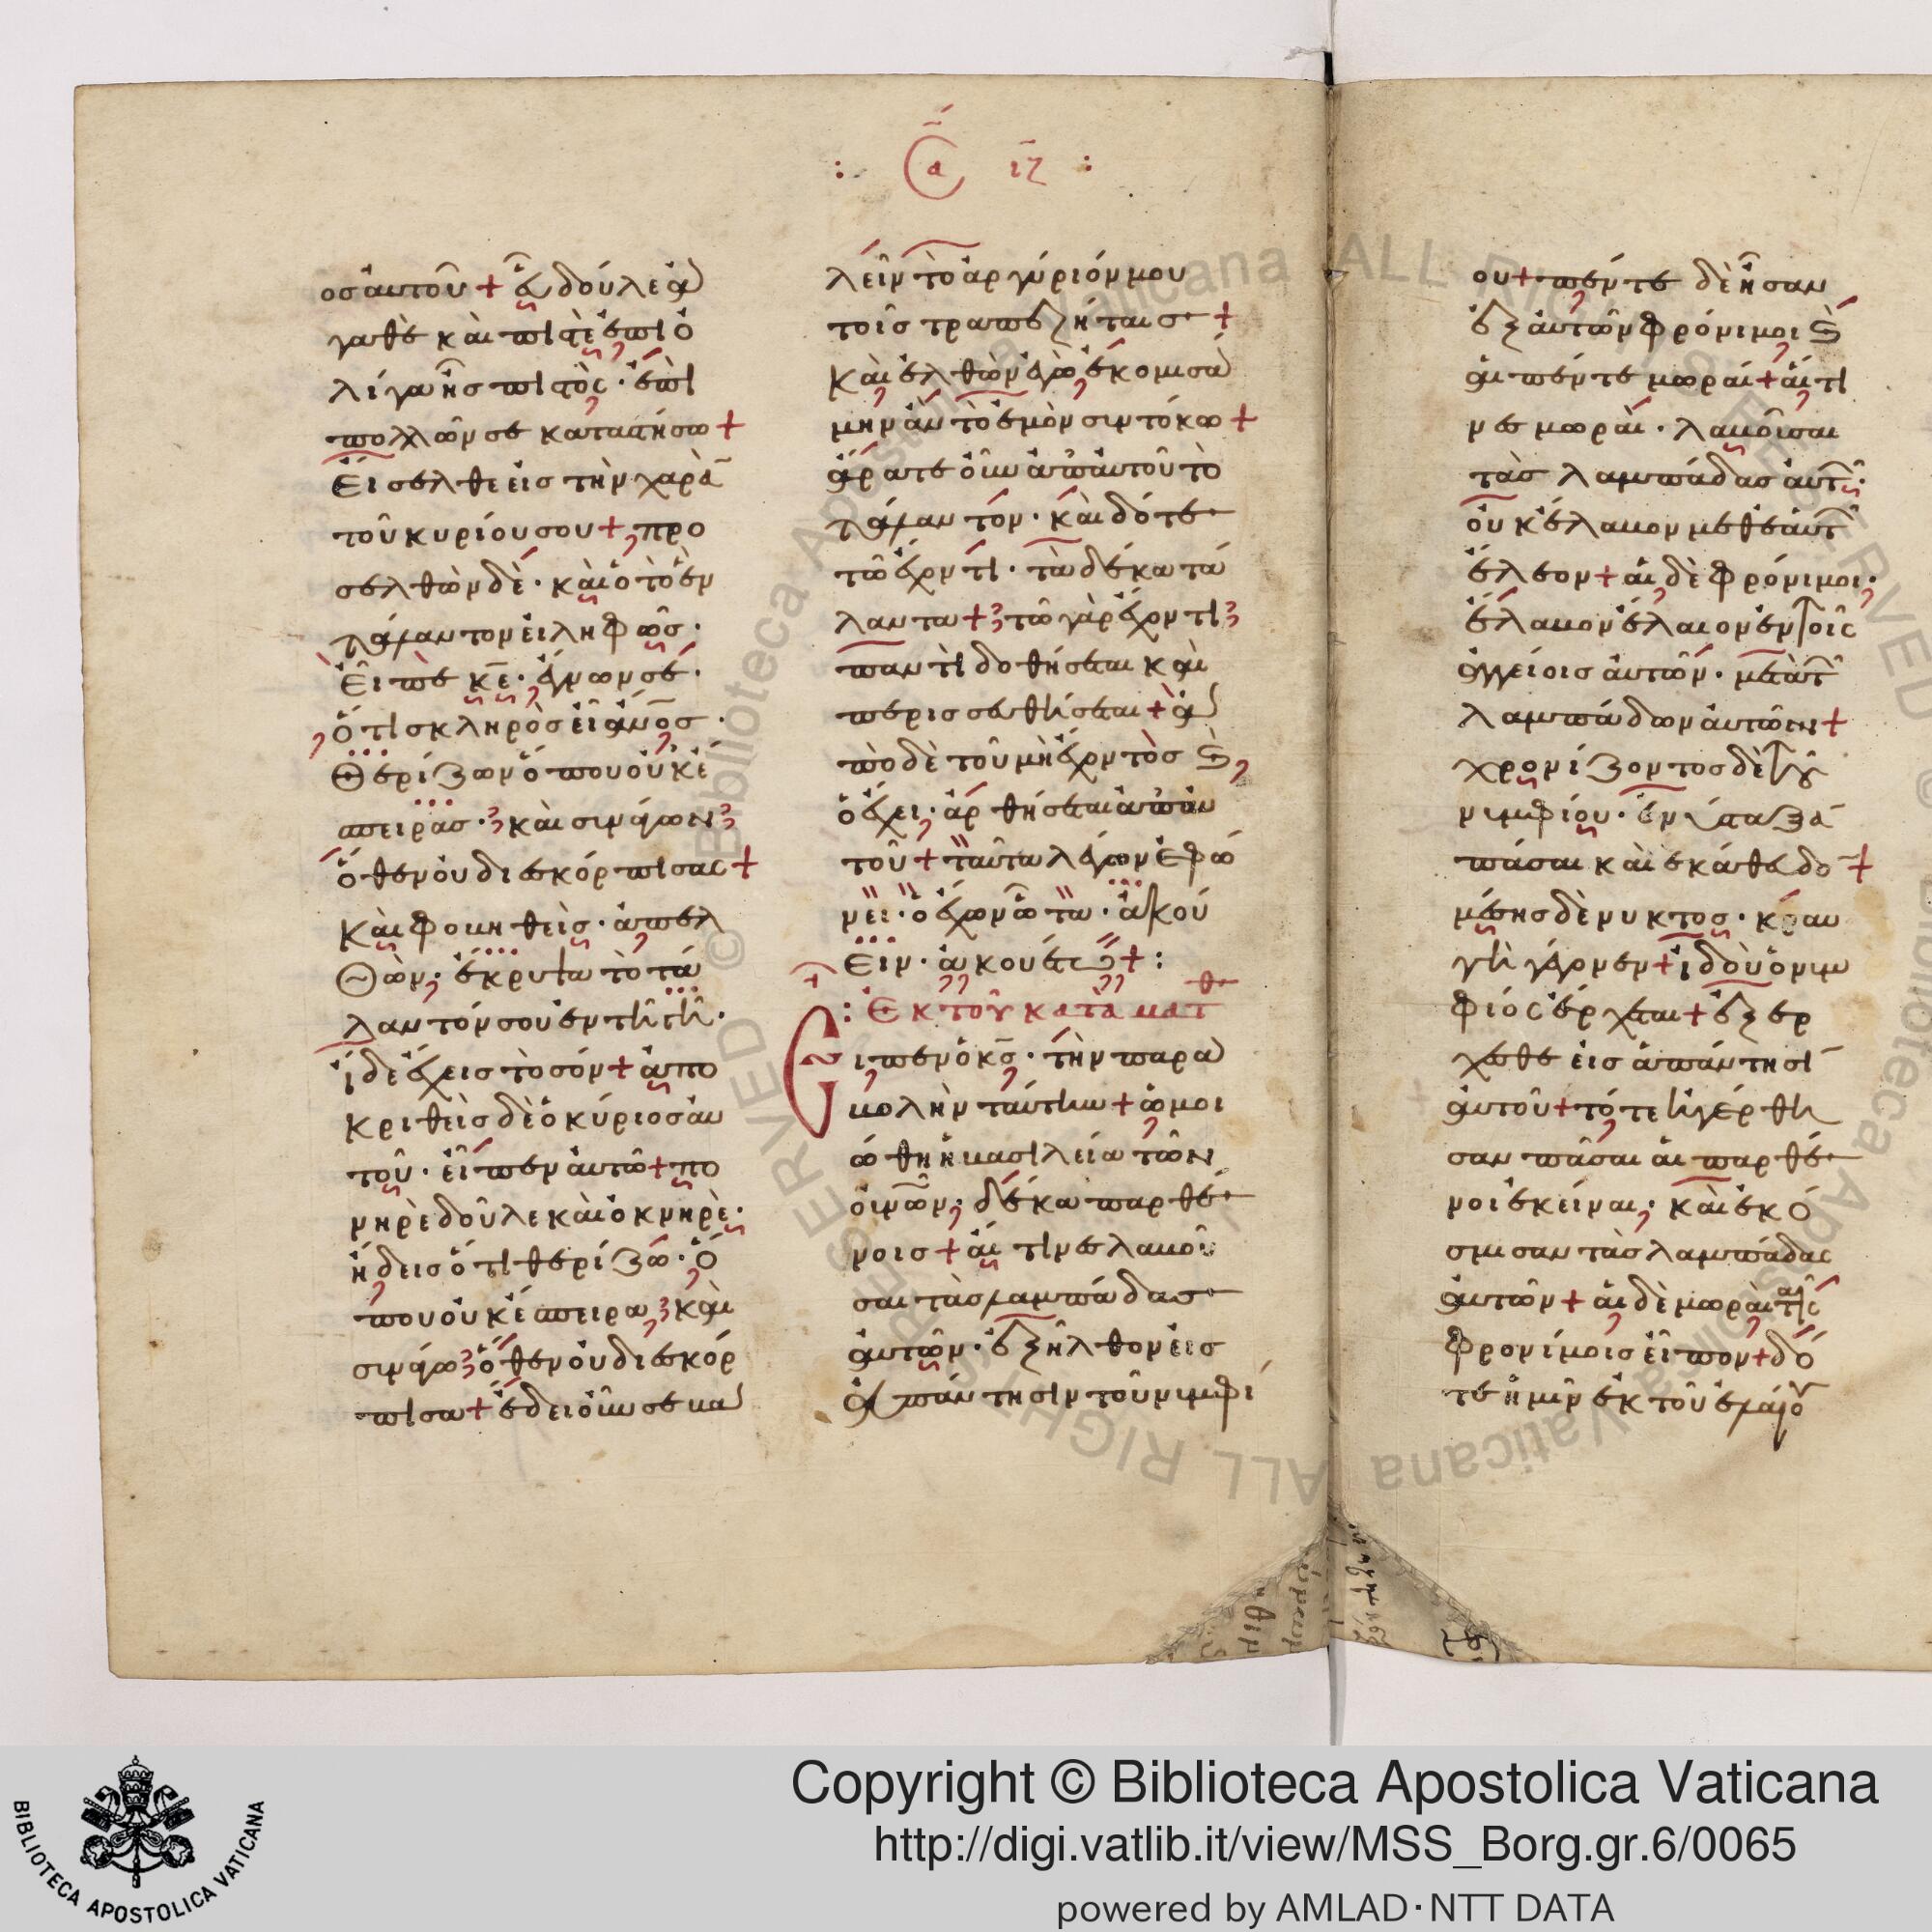 : Σα ιζ :
οσ ἀυτοῦ + ἆ δούλε ἀ
γαθὲ κ ὰι πιστὲ ἐπι ὀ
λίγα ἦσ πιστὸς · ἐπὶ
πολλῶν σε καταστήσω +
Ἐισελθε ἐισ τὴν χαρὰ̄
τοῦ κυρίου σου + προ
σελθὼν δὲ · κὰι ὁ τὸ ἐν
τάλαντον ἐιληφῶσ ·
Ἐῖπὲ κ̄ε̄ · ἔγνων σέ ·
ὅτι σκληρὸσ εἶ ἀν̄ο̄σ ·
Θερίζων ὅπου οὐκ ἔ
σπειρασ · κὰι συνάγων
ὅθεν ὀυ διεσκόρπισας +
Κὰι φοβηθεὶς · ἀπελ
Θὼν · ἔκρυψα τὸ τά
λαντόν σου ἐν τῆ γῆ ·
ἴδε ἔχεις τὸ σόν + ἀπο
κριθεὶσ δὲ ὁ κύριοσ ἀυ
τοῦ · ἐῖπεν ἀυτῶ + πο
νηρὲ δοῦλε κὰι ὀκνηρὲ ·
ἤδεισ ὅτι θερίζω · ὅ
που ὀυκ ἔσπειρα κὰι
συνάγω ὅθεν ὀυ διεσκόρ
πισα + ἔδει ὀῦν σε βα
λεῖν τὸ ἀργύριόν μου
τοῖσ τραπεζήταισ +
Κὰι ἐλθὼν ἐγὼ ἐκομισά
μην ἂν τὸ ἐμὸν σιν τόκω +
ἄρατε ὀῦν ἀπ ἀυτοῦ τὸ
τάλαντον · κὰι δότε
τῶ ἔχοντι · τὰ δέκα τά
λαντα + τῶ γὰρ ἔχοντι
παντὶ δοθήσεται κὰι
περισσευθήσεται + ἀ
πὸ δὲ τοῦ μὴ ἔχοντοσ ϗ
ὃ ἔχει · ἀρθήσεται ἀπ ἀυ
τοῦ + ταῦτα λέγων ἐφώ
νει · ὁ ἔχων ὦτα · ἀκού
ειν · ἀκουέτω + :
: Ἐκ τοῦ κατὰ ματθ
Ειπεν ὁ κ̄σ̄ · τὴν παρα
βολὴν ταύτην + ὡμοι
ώθη ἡ βασιλεία τῶν
οὐνῶν · δέκα παρθέ
νοισ + ἅι τινεσ λαβοῦ
σαι τὰσ λαμπάδασ
ἁυτῶν · ἐξῆλθον ἐισ
ἀπάντησιν τοῦ νιμφί
ου + πέντε δὲ ἦσαν
ἐξ ἀυτῶν φρόνιμοι ϗ
ἁι πέντε μωραί + ἅιτι
νεσ μωραὶ · λαβοῦσαι
τὰσ λαμπάδασ ἁυτ ·
ὀυκ ἔλαβον μεθ ἑαυτ
ἔλεον + ἁι δὲ φρόνιμοι ·
ἔλαβον ἔλαιον ἐν τοῖς
ἀγγείοισ ἁυτῶν · μετὰ τ
λαμπάδων ἁυτῶν +
χρονίζοντοσ δὲ τοῦ
νιμφίου · ἐνύσταξᾱ
πᾶσαι κὰι ἐκάθευδο̄ +
μέσησ δὲ νυκτος · κραυ
γὴ γέγονεν + ἰδοὺ ὁ νιμ
φιός ἔρχεται + ἐξερ
χεσθε ἐισ ἀπάντησῑ
ἀυτοῦ + τότε ἠγέρθη
σαν πᾶσαι ἁι παρθέ
νοι ἐκείναι · κὰι ἐκό
σμισαν τὰσ λαμπάδας
ἁυτῶν + ἁι δὲ μωρὰι ταῖς
φρονίμοισ ἐῖπον + δό
τε ἡμῖν ἐκ τοῦ ἐλαίου
BIBLIOTECA APOSTOLICA VATICANA
Copyright © Biblioteca Apostolica Vaticana
http://digi.vatlib.it/view/MSS_Borg.gr.6/0065
powered by AMLAD·NTT DATA